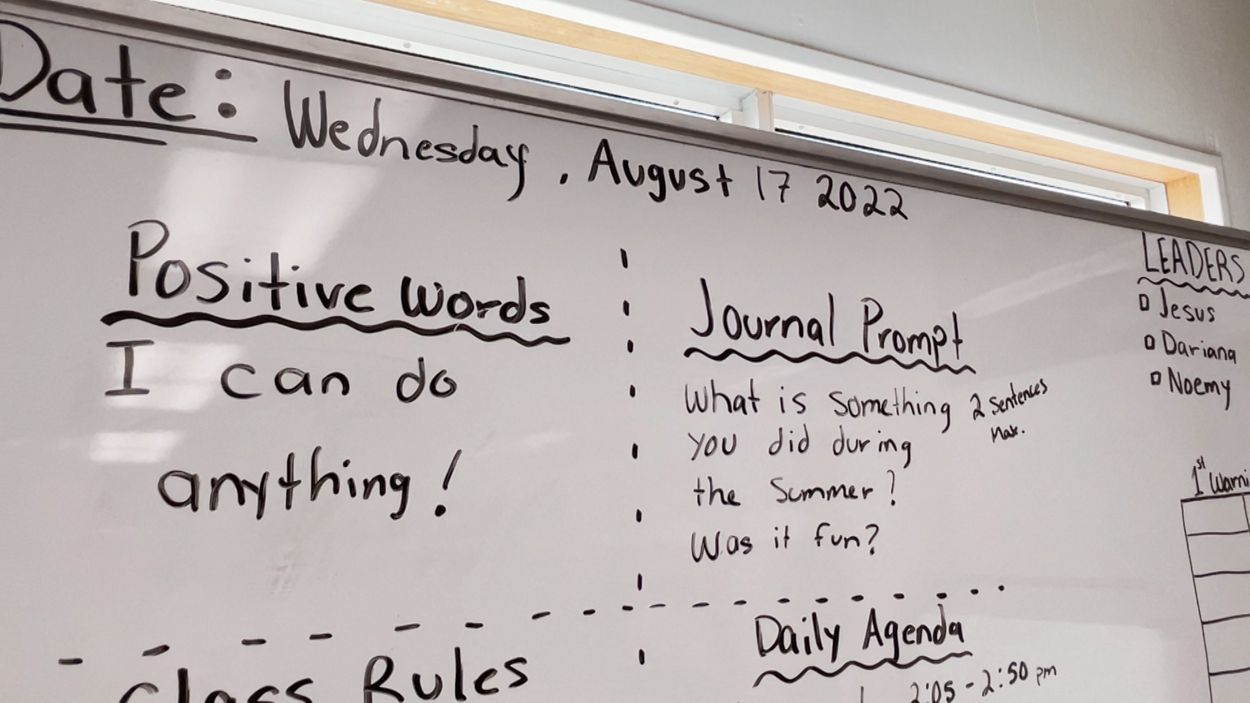 Date: Wednesday, August 17 2022
Positive Words
I can do
anything!
Journal Prompt
What is something
you did during
the Summer?
Was it fun?
2 sentences
Max.
LEADERS
Jesus
Dariana
Noemy
1st
Class Rules
Daily Agenda
2:05 - 2:50 pm